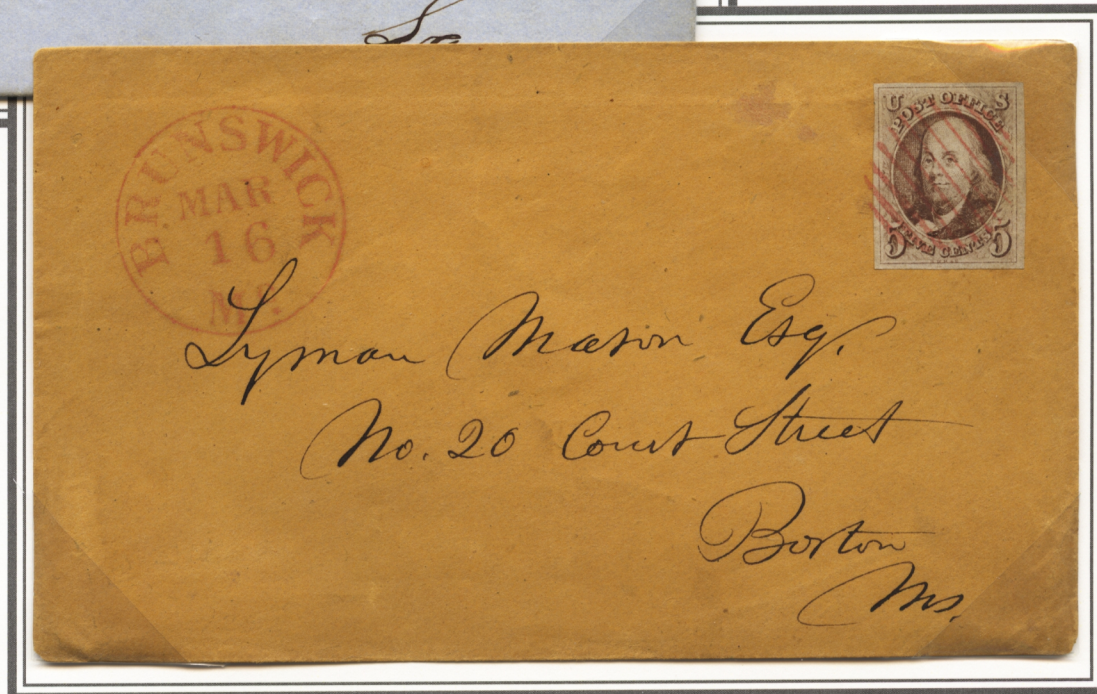 BRUNSWICK
MAR
16
ME.
U S
POST OFFICE
5 FIVE CENTS 5
Lyman Mason Esq.
No. 20 Court Street
Boston
Ms.